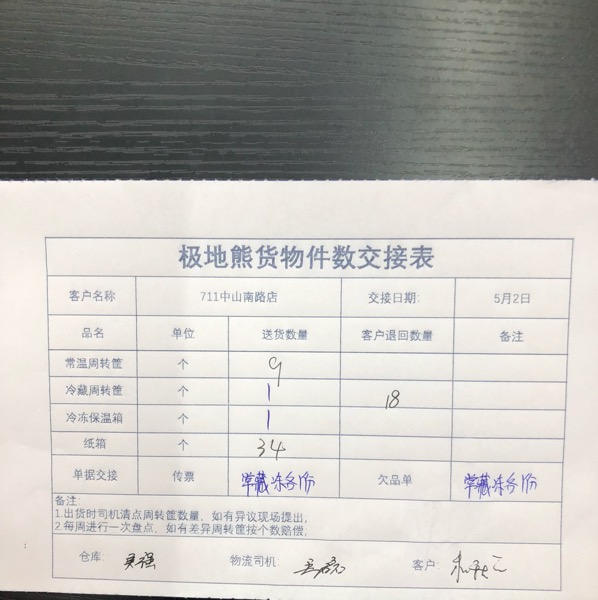 极地熊货物件数交接表
客户名称 711中山南路店 交接日期: 5月2日
品名 单位 送货数量 客户退回数量 备注
常温周转筐 个 9
冷藏周转筐 个 1 18
冷冻保温箱 个 1
纸箱 个 34
单据交接 传票 常藏冻各1份 欠品单 常藏冻各1份
备注:
1.出货时司机清点周转筐数量，如有异议现场提出,
2.每周进行一次盘点，如有差异周转筐按个数赔偿,
仓库: 物流司机: 客户: